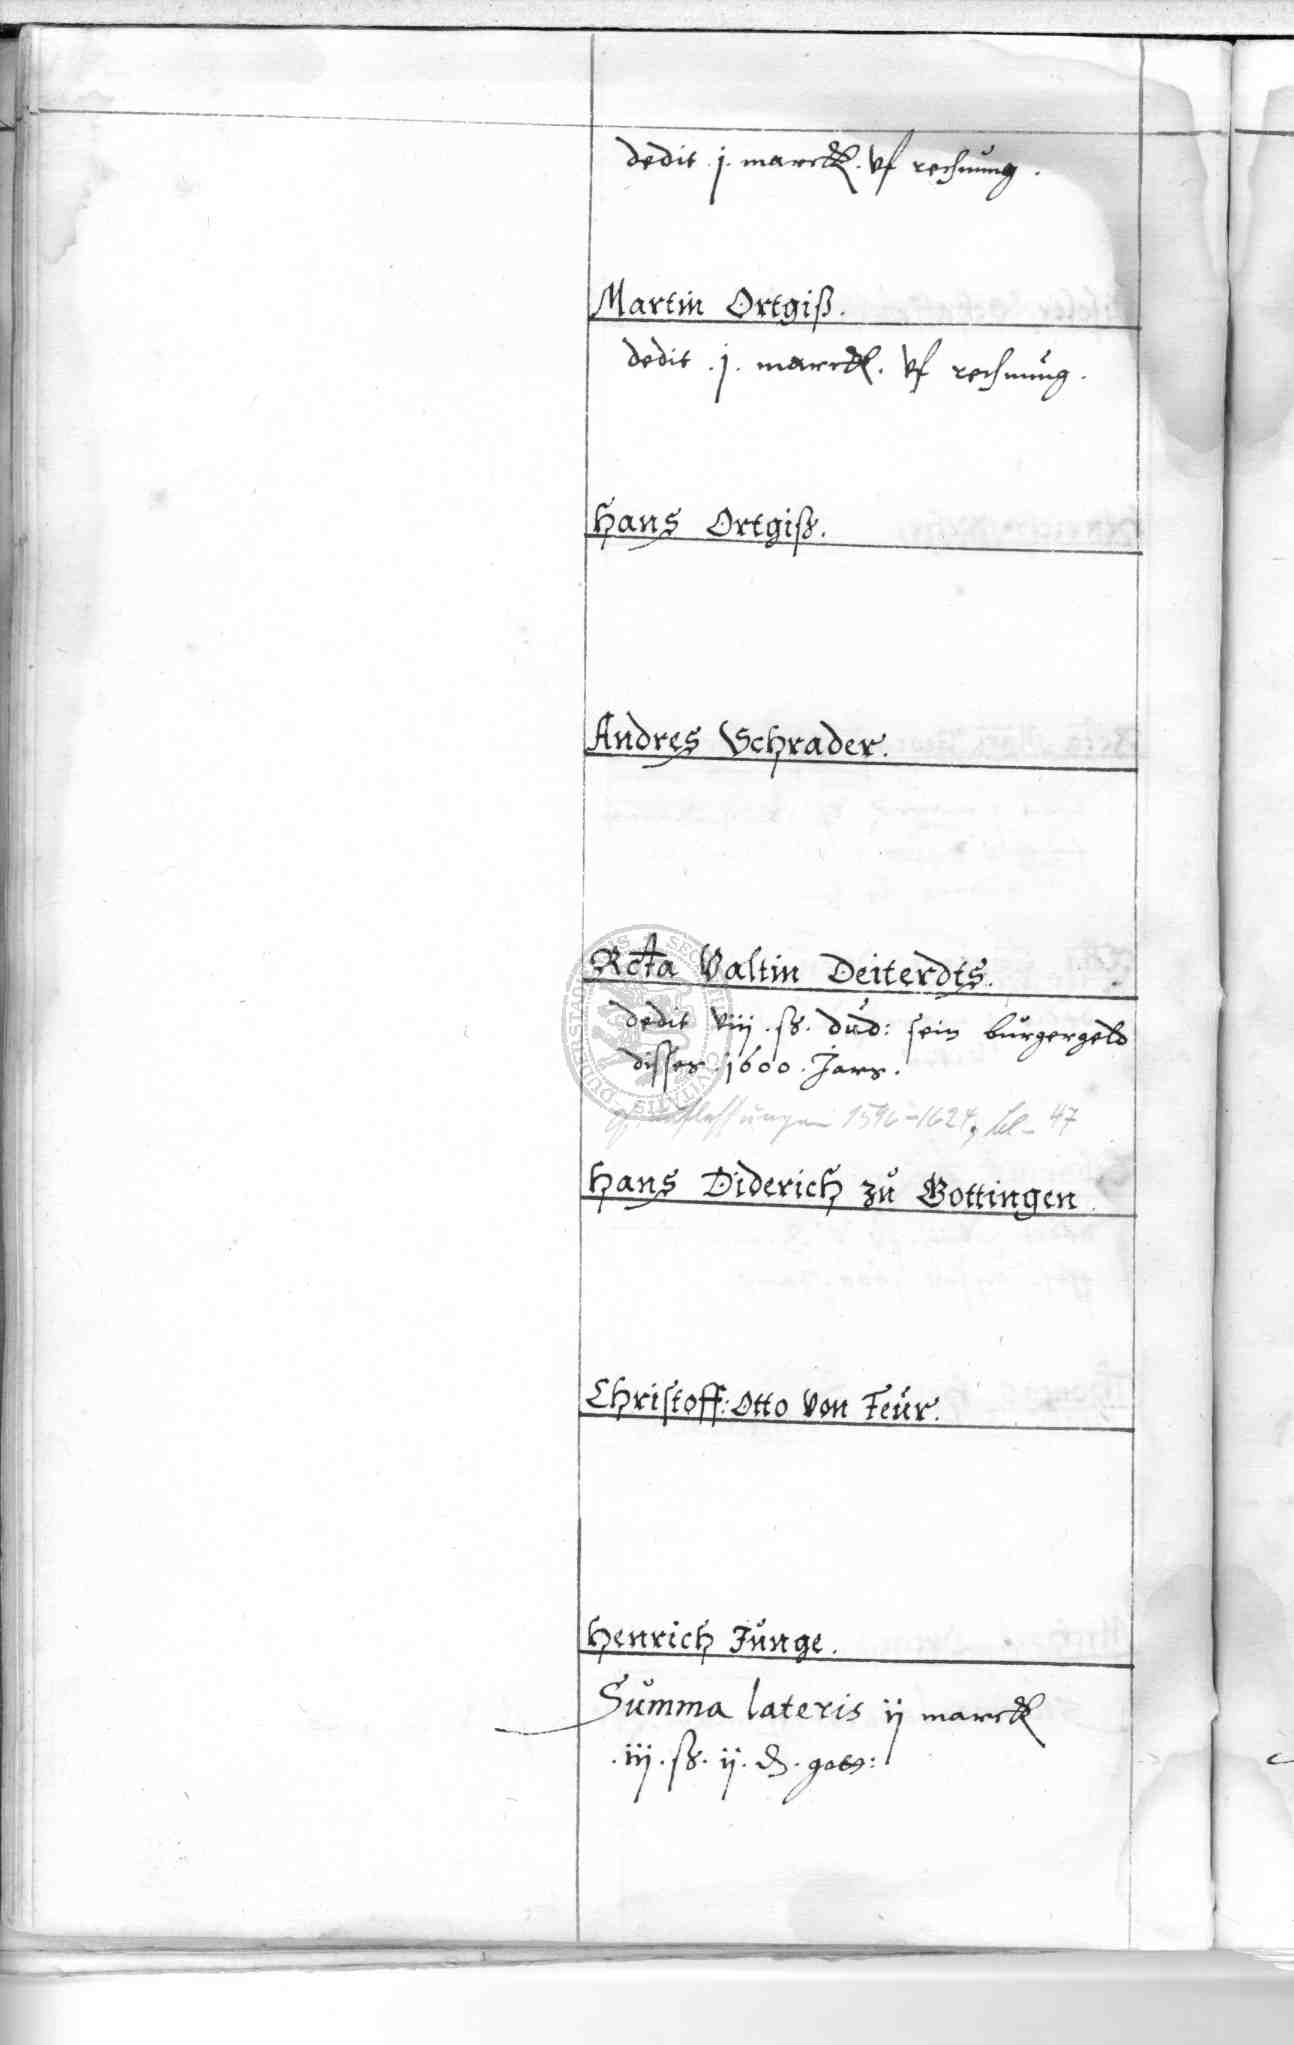 dedit .j. marck. vf rechnung.
Martin Ortgiß.
dedit .j. marck. vf rechnung.
Hans Ortgiß.
Andres Schrader.
Rcta Valtin Deiterdts.
dedit viij. ß. dud: sein burgergeld
disses 1600. Jars.
1596-1624, bl. 47
Hans Diderich zu Gottingen
Christoff: Otto von Teur.
Henrich Junge.
Summa lateris ij marck
.iij. ß. ij. d. gots: